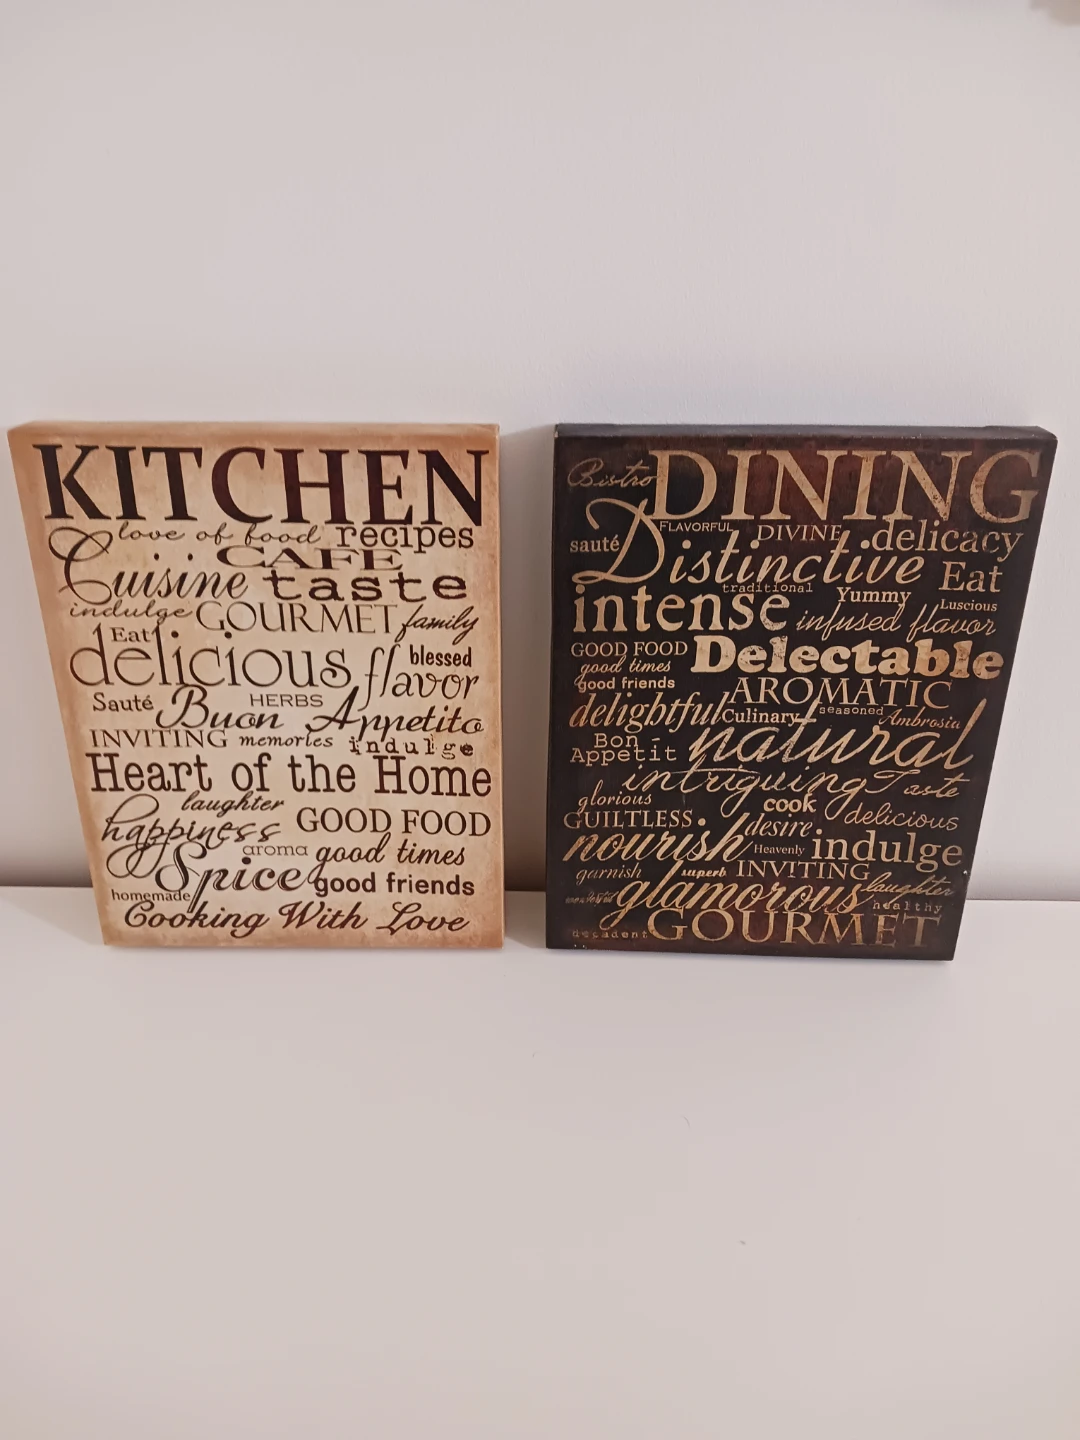 KITCHEN
love of food recipes
CAFE
Cuisine taste
indulge GOURMET family
Eat
delicious flavor blessed
Sauté Buon Appetito HERBS
INVITING memories indulge
Heart of the Home
laughter
happiness GOOD FOOD
aroma good times
Spice good friends
homemade
Cooking With Love
Bistro DINING
FLAVORFUL DIVINE delicacy
sauté Distinctive Eat
traditional Yummy Luscious
intense infused flavor
GOOD FOOD Delectable
good times
good friends AROMATIC
delightful Culinary seasoned Ambrosia
Bon natural
Appétit
intriguing Taste
glorious cook delicious
GUILTLESS desire
nourish Heavenly indulge
garnish superb INVITING
glamorous laughter
healthy
decadent GOURMET